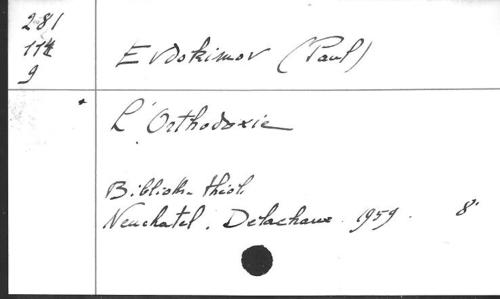 281
114
9
Evdokimov (Paul)
* L'Orthodoxie
Biblioth. théol.
Neuchatel. Delachaux. 1959. 8°